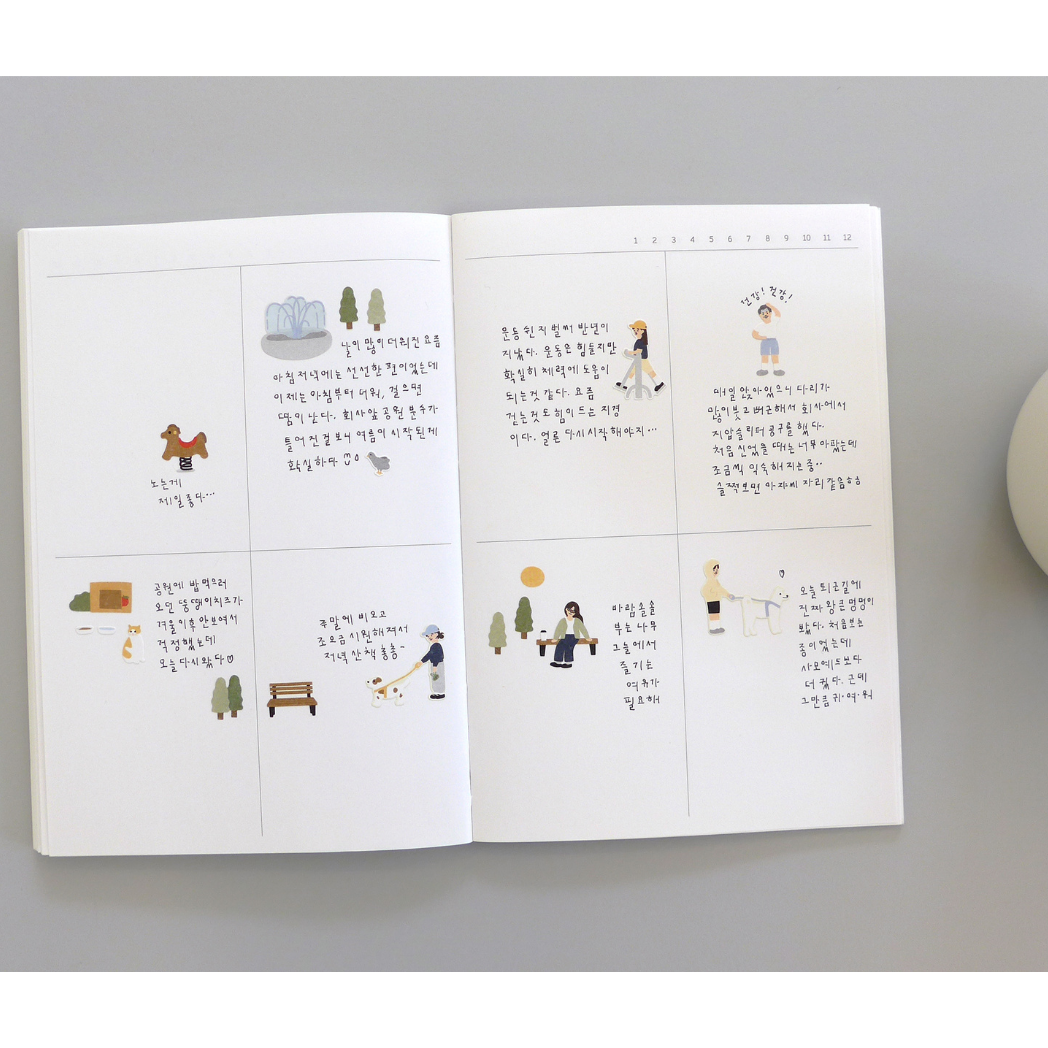 노는게
제일 좋다...
날이 많이 더워진 요즘
아침 저녁에는 선선한 편이었는데
이제는 아침부터 더워, 걸으면
땀이 난다. 회사앞 공원 분수가
틀어진걸 보니 여름이 시작된게
확실하다
공원에 밥 먹으러
오던 뚱땡이치즈가
겨울이후 안보여서
걱정했는데
오늘 다시 왔다♡
주말에 비오고
조금 시원해져서
저녁 산책 총총~
1 2 3 4 5 6 7 8 9 10 11 12
운동 쉰지 벌써 반년이
지났다. 운동은 힘들지만
확실히 체력에 도움이
되는것 같다. 요즘
걷는것도 힘이 드는 지경
이다. 얼른 다시 시작해야지...
건강! 건강!
매일 앉아있으니 다리가
많이 붓고 뻐근해서 회사에서
지압슬리퍼 공구를 했다.
처음 신었을 때는 너무 아팠는데
조금씩 익숙해지는중..
슬쩍보면 아저씨 자리 같음ㅎㅎ
바람 솔솔
부는 나무
그늘에서
즐기는
여유가
필요해
오늘 퇴근길에
진짜 왕큰 멍멍이
봤다. 처음보는
종이었는데
사모예드보다
더 컸다. 근데
그만큼 귀·여·워